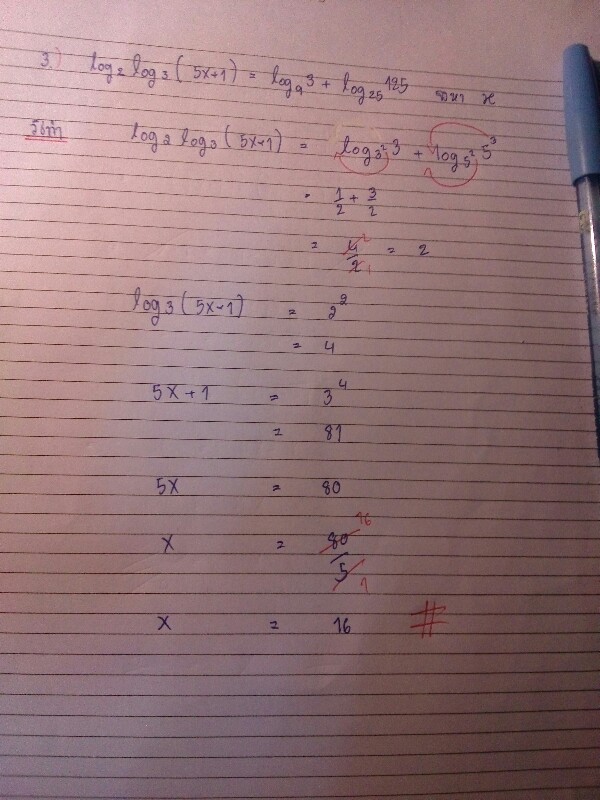 3.) log₂ log₃ (5x+1) = log₉3 + log₂₅125 จงหา x
วิธีทำ log₂ log₃ (5x+1) = log₃²3 + log₅²5³
= 1/2 + 3/2
= 4/2 = 2
log₃(5x+1) = 2²
= 4
5x+1 = 3⁴
= 81
5x = 80
x = 80/5 16 1
x = 16 #